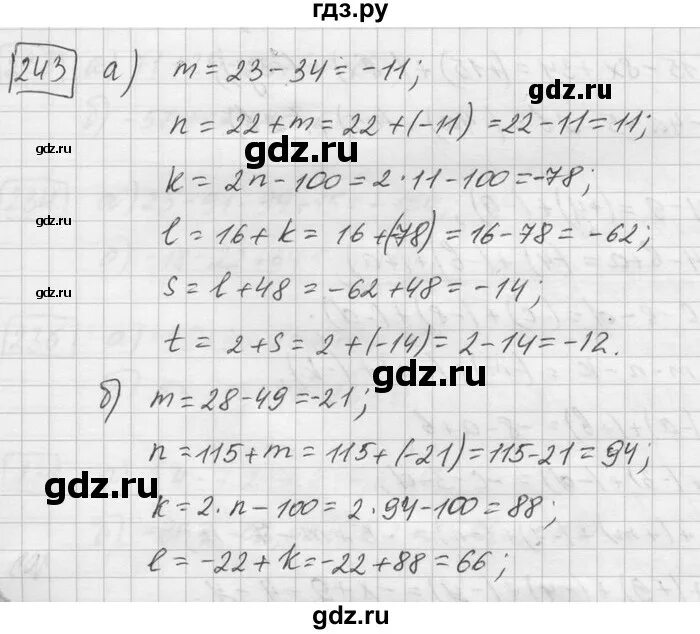 гдз.ру
243 а) m = 23 - 34 = -11;
gdz.ru
n = 22 + m = 22 + (-11) = 22 - 11 = 11;
gdz.ru gdz.ru
k = 2n - 100 = 2 · 11 - 100 = -78;
gdz.ru gdz.ru
l = 16 + k = 16 + (-78) = 16 - 78 = -62;
s = l + 48 = -62 + 48 = -14;
gdz.ru gdz.ru
t = 2 + s = 2 + (-14) = 2 - 14 = -12.
gdz.ru
б) m = 28 - 49 = -21;
n = 115 + m = 115 + (-21) = 115 - 21 = 94;
gdz.ru
k = 2 · n - 100 = 2 · 94 - 100 = 88;
gdz.ru
l = -22 + k = -22 + 88 = 66;
гдз.ру